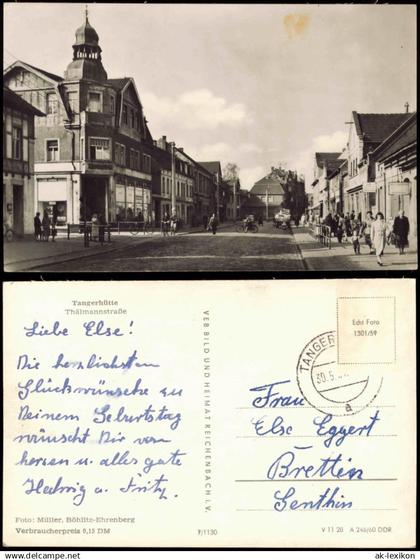 Tangerhütte
Thälmannstraße
Liebe Else!
Die herzlichsten
Glückwünsche zu
Deinem Geburtstag
wünscht Dir von
herzen u. alles gute
Hedwig u. Fritz.
Foto: Müller, Böhlitz-Ehrenberg
Verbraucherpreis 0,15 DM
VEB BILD UND HEIMAT REICHENBACH i. V.
9/1130
Echt Foto
1301/59
TANGER
30.5.
a
Frau
Else Eggert
Brettin
Genthin
V 11 28 A 248/60 DDR
© ak-lexikon.com